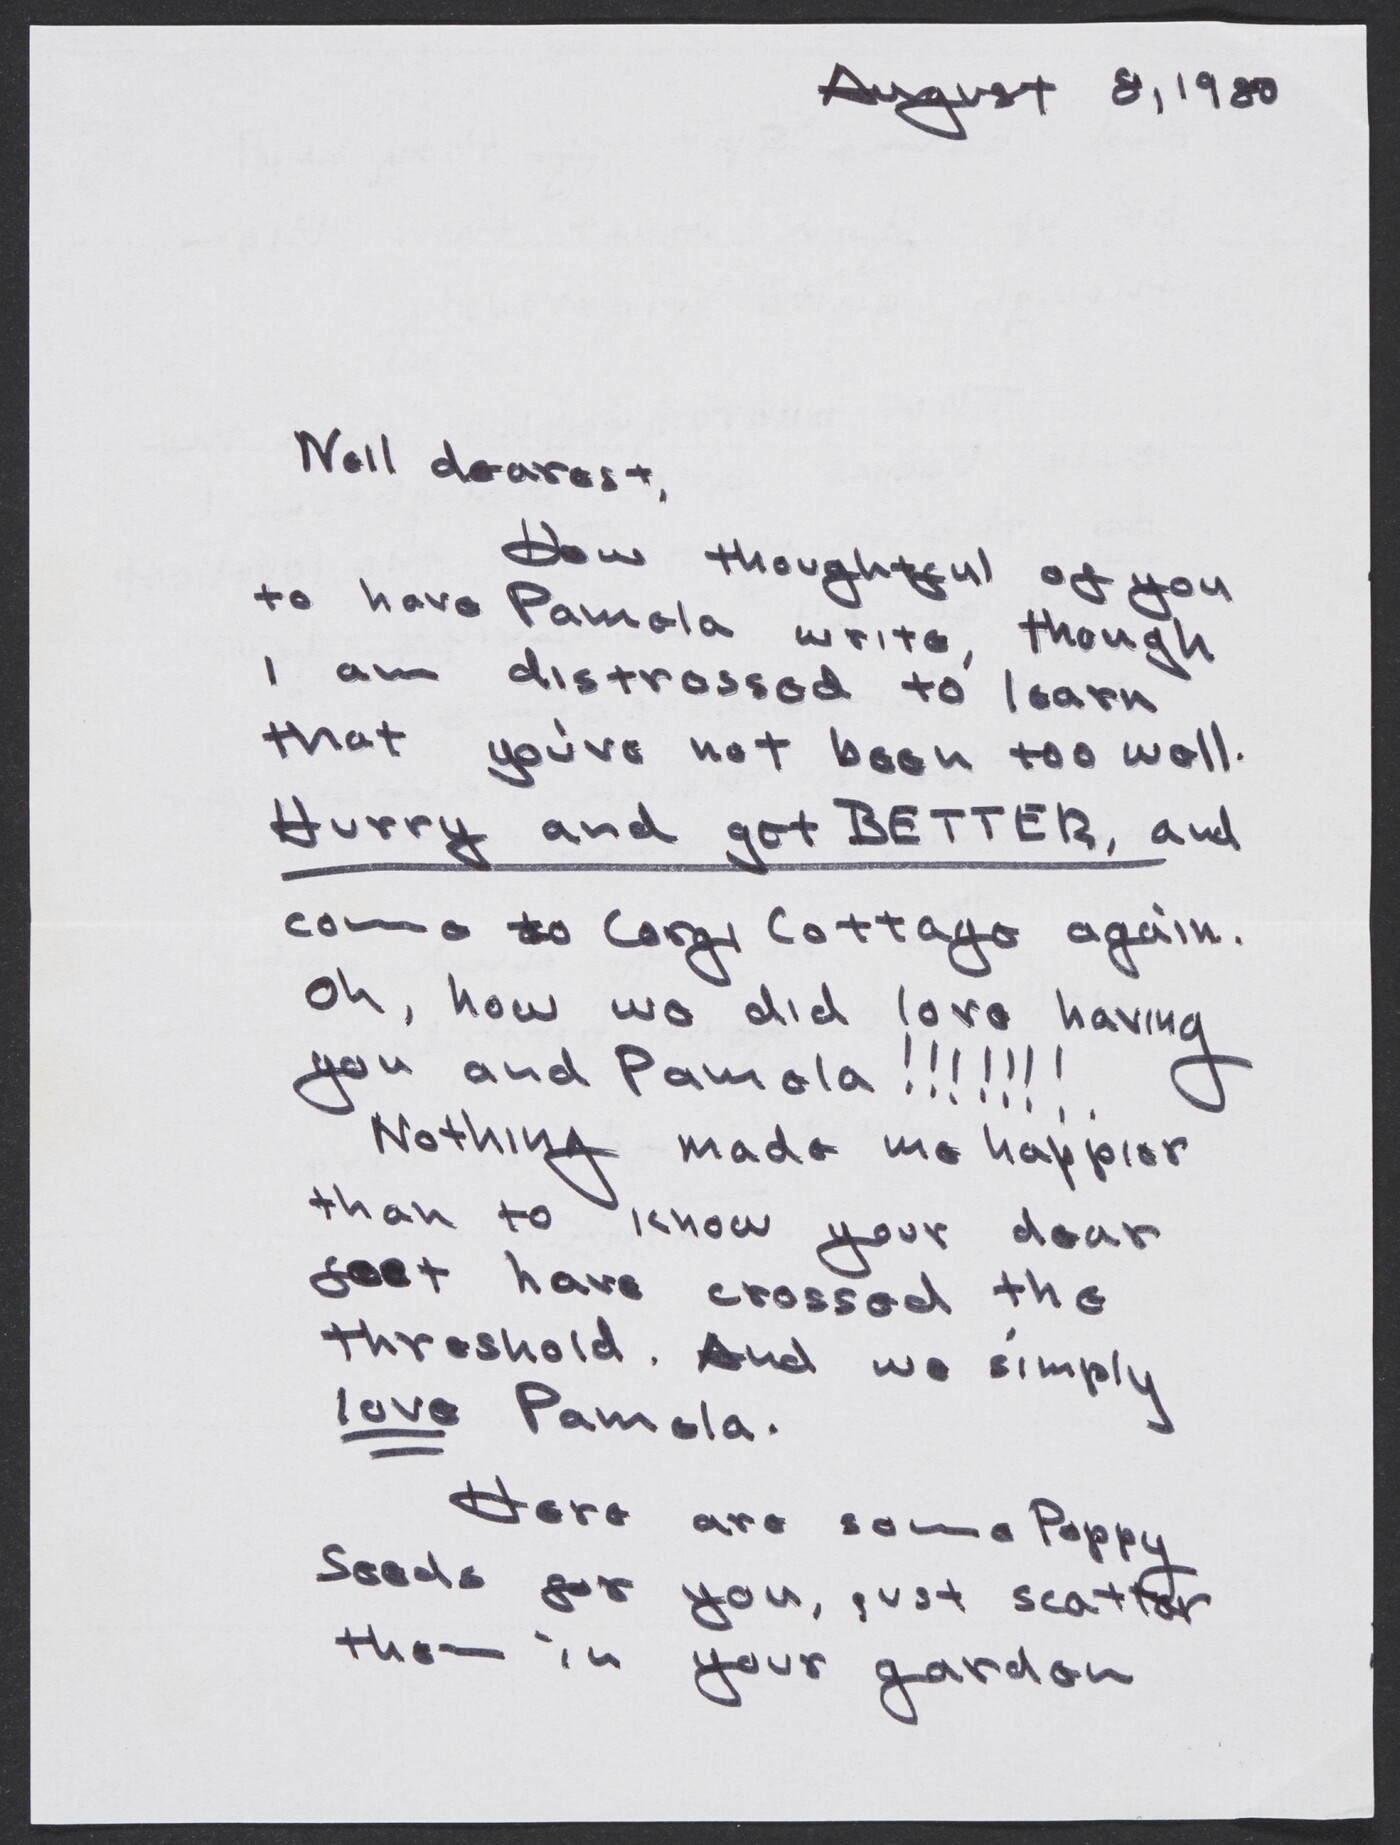 August 8, 1980
Nell dearest,
How thoughtful of you
to have Pamela write, though
I am distressed to learn
that you've not been too well.
Hurry and get BETTER, and
come to Corgi Cottage again.
Oh, how we did love having
you and Pamela!!!!!!!!
Nothing made me happier
than to know your dear
feet have crossed the
threshold. And we simply
love Pamela.
Here are some Poppy
Seeds for you, just scatter
them in your garden